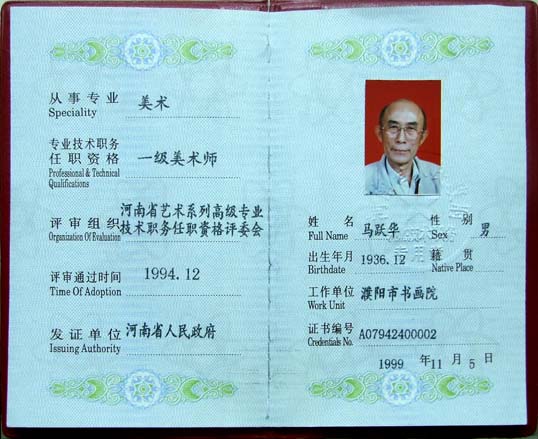 从事专业 美术
Speciality
专业技术职务
任职资格 一级美术师
Professional & Technical
Qualifications
河南省艺术系列高级专业
评审组织 技术职务任职資格评委会
Organization Of Evaluation
评审通过时间 1994.12
Time Of Adoption
发证单位 河南省人民政府
Issuing Authority
姓名 马跃华 性别 男
Full Name Sex
出生年月 1936.12 籍贯
Birthdate Native Place
工作单位 濮阳市书画院
Work Unit
证书编号 A07942400002
Credentials No.
1999 年 11 月 5 日